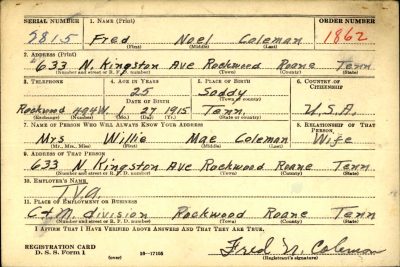 SERIAL NUMBER 1. NAME (Print) ORDER NUMBER
2815 Fred Noel Coleman 1862
(First) (Middle) (Last)
2. ADDRESS (Print)
633 N. Kingston Ave Rockwood Roane Tenn
(Number and street or R. F. D. number) (Town) (County) (State)
3. TELEPHONE 4. AGE IN YEARS 5. PLACE OF BIRTH 6. COUNTRY OF CITIZENSHIP
25 Soddy
DATE OF BIRTH (Town or county)
Rockwood 494W. 1 27 1915 Tenn. U.S.A.
(Exchange) (Number) (Mo.) (Day) (Yr.) (State or country)
7. NAME OF PERSON WHO WILL ALWAYS KNOW YOUR ADDRESS 8. RELATIONSHIP OF THAT PERSON
Mrs Willie Mae Coleman Wife
(Mr., Mrs., Miss) (First) (Middle) (Last)
9. ADDRESS OF THAT PERSON
633 N Kingston Ave Rockwood Roane Tenn
(Number and street or R. F. D. number) (Town) (County) (State)
10. EMPLOYER'S NAME
T.V.A.
11. PLACE OF EMPLOYMENT OR BUSINESS
C&M. division Rockwood Roane Tenn
(Number and street or R. F. D. number) (Town) (County) (State)
I AFFIRM THAT I HAVE VERIFIED ABOVE ANSWERS AND THAT THEY ARE TRUE.
REGISTRATION CARD
D. S. S. Form 1 (over) 16—17105 Fred N. Coleman
(Registrant's signature)